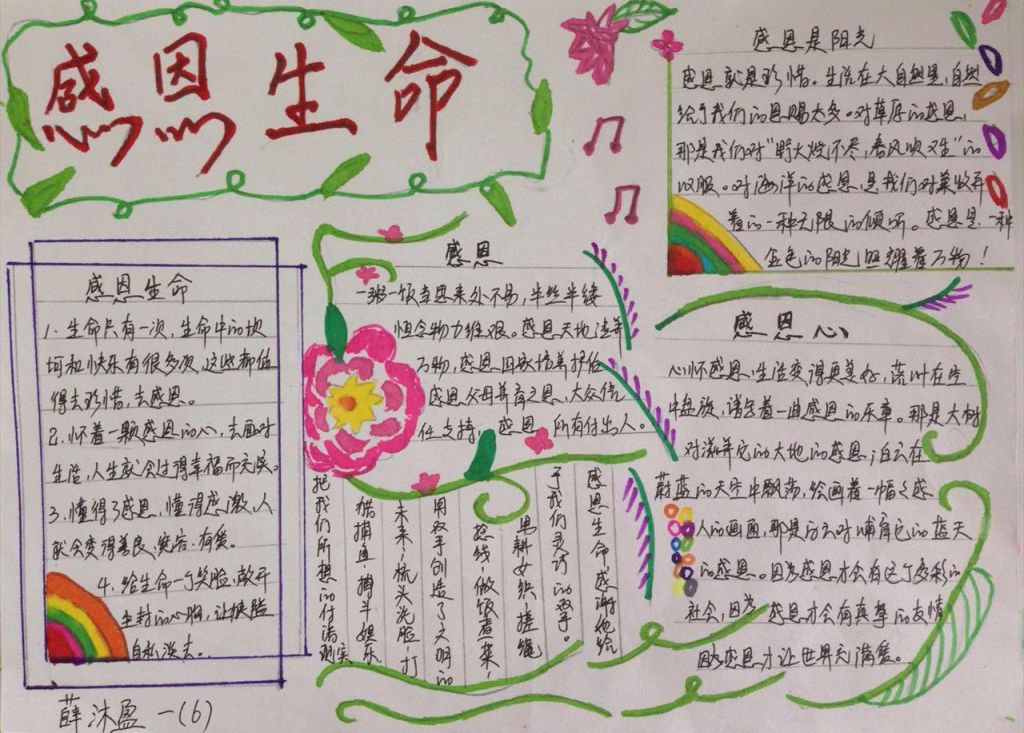 感恩生命
感恩是阳光
感恩就是珍惜。生活在大自然里,自然
给予我们的恩赐太多。对草原的感恩,
那是我们对"野火烧不尽,春风吹又生"的
叹服。对海洋的感恩,是我们对
着的一种无限的倾听。感恩是一种
金色的阳光照耀着万物!
感恩生命
1.生命只有一次,生命中的坎
坷和快乐有很多次,这些都值
得去珍惜,去感恩。
2.怀着一颗感恩的心,去面对
生活,人生就会过得幸福而无憾。
3.懂得了感恩,懂得感激,人
就会变得善良,宽容,有爱。
4.给生命一个笑脸,敞开
尘封的心胸,让狭隘
自私远去。
感恩
一粥一饭当思来处不易,半丝半缕
恒念物力维艰。感恩天地滋养
万物,感恩国家培养护佑
感恩父母养育之恩,大众信
任支持。感恩所有付出人。
感恩心
心怀感恩,生活变得更美好,落叶在空
中盘旋,谱写着一曲感恩的乐章。那是大树
对滋养它的大地的感恩;白云在
蔚蓝的天空中飘荡,绘画着一幅幅感
人的画面,那是白云对哺育它的蓝天
的感恩。因为感恩才会有这个多彩的
社会,因为感恩才会有真挚的友情
因为感恩才让世界充满爱。
感恩生命,感谢他给
予我们灵巧的双手。
男耕女织,搓绳
捻线,做饭煮菜,
用双手创造了文明的
未来;梳头洗脸,打
猎捕鱼,搏斗娱乐
把我们所想的付诸现实
薛沐盈 一(6)